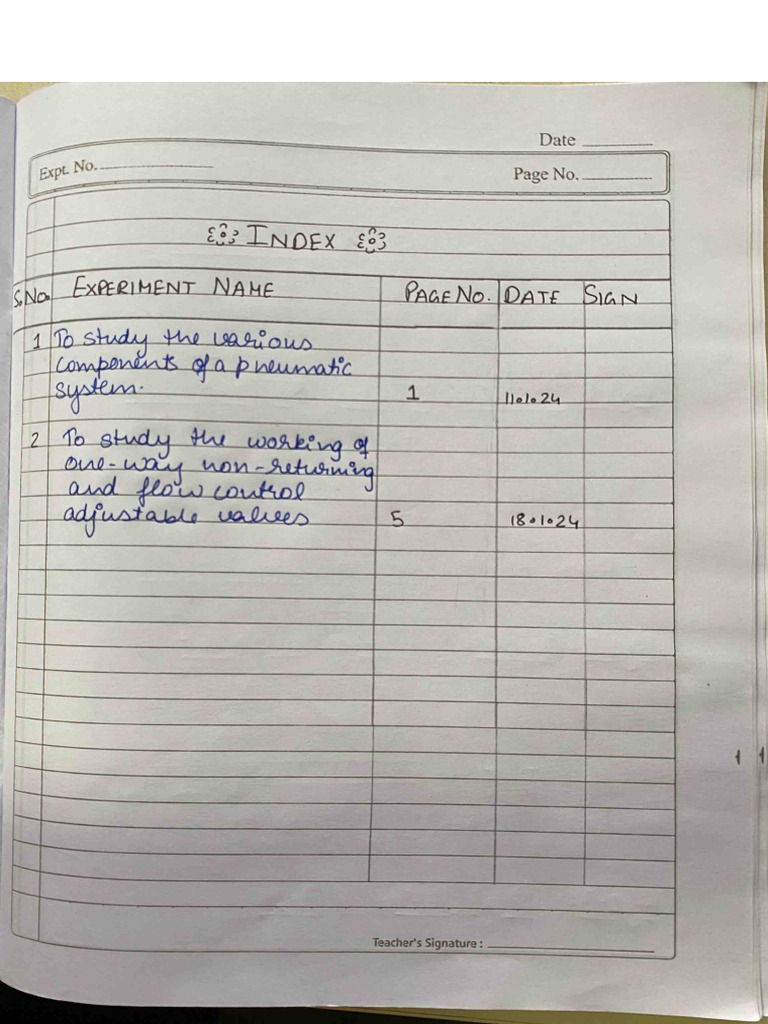 Date
Expt. No.
Page No.
INDEX
S.No. EXPERIMENT NAME PAGE NO. DATE SIGN
1 To study the various
components of a pneumatic
system. 1 11.1.24
2 To study the working of
one-way non-returning
and flow control
adjustable valves 5 18.1.24
Teacher's Signature :